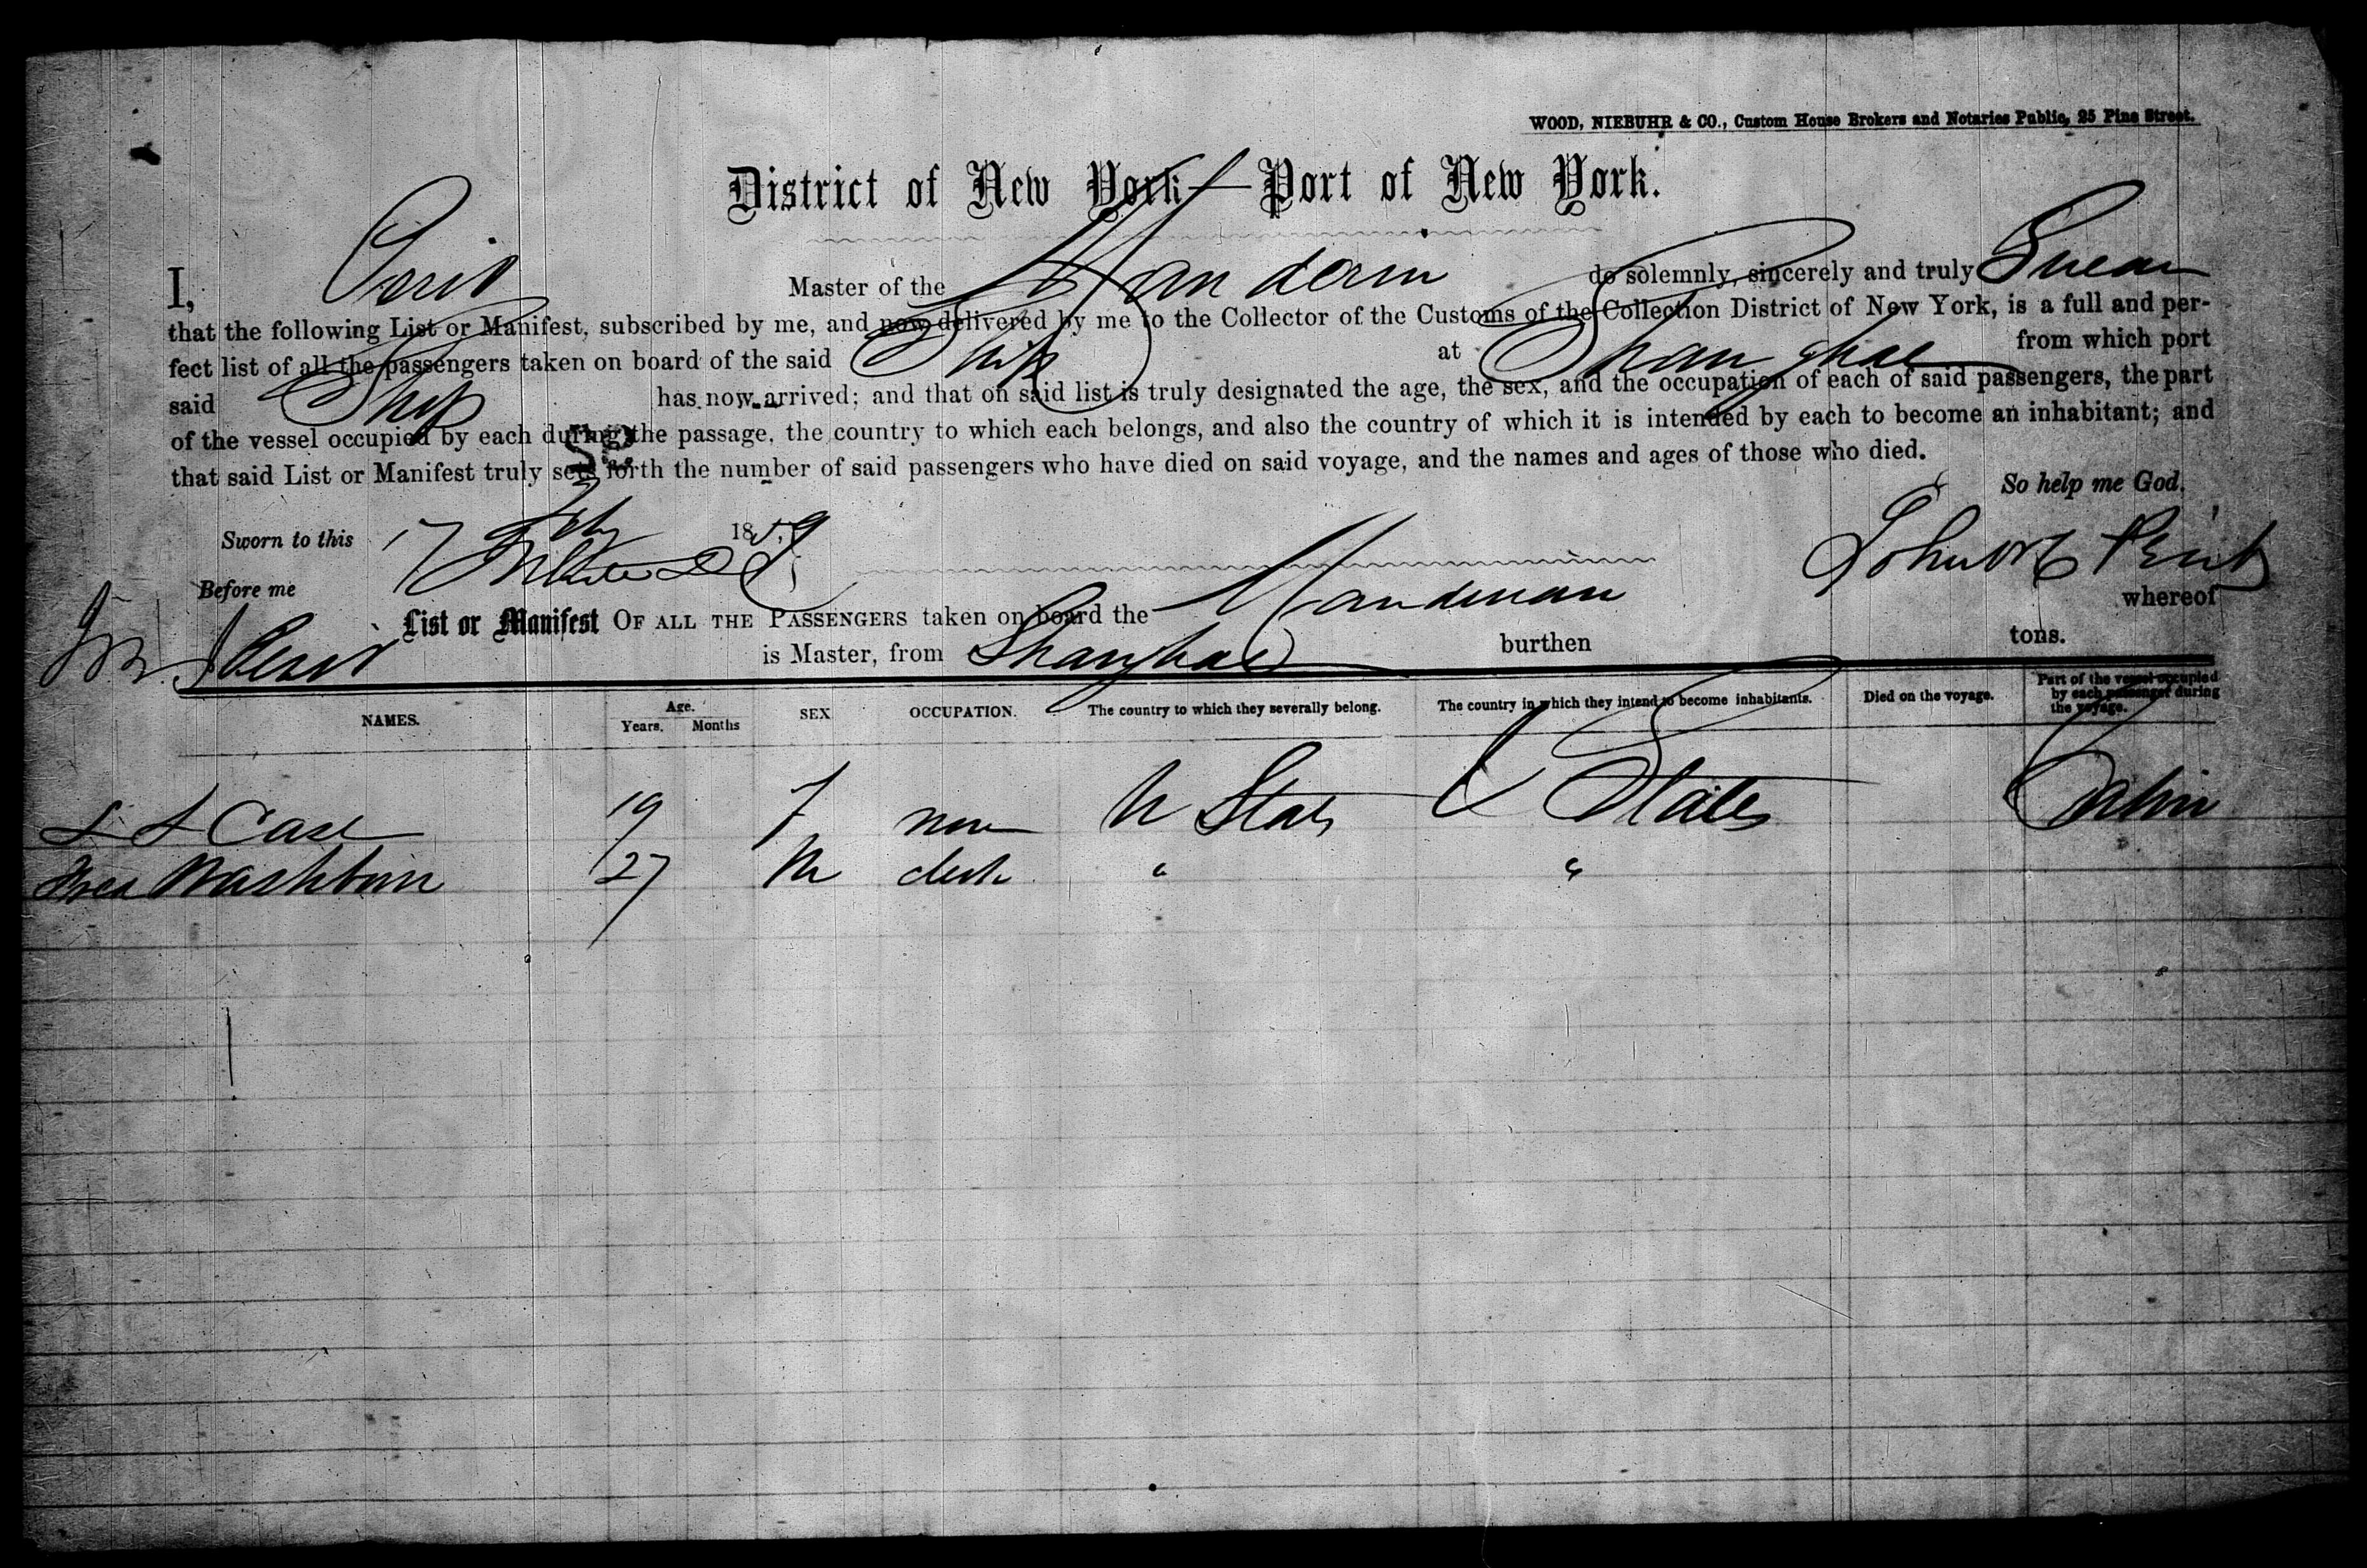 WOOD, NIEBUHR & CO., Custom House Brokers and Notaries Public, 25 Pine Street.
District of New York—Port of New York.
I, Master of the Mandarin do solemnly, sincerely and truly Swear
that the following List or Manifest, subscribed by me, and now delivered by me to the Collector of the Customs of the Collection District of New York, is a full and per-
fect list of all the passengers taken on board of the said Ship at Shanghae from which port
said Ship has now arrived; and that on said list is truly designated the age, the sex, and the occupation of each of said passengers, the part
of the vessel occupied by each during the passage, the country to which each belongs, and also the country of which it is intended by each to become an inhabitant; and
that said List or Manifest truly sets forth the number of said passengers who have died on said voyage, and the names and ages of those who died.
58
So help me God.
Sworn to this 17 Feby 1859
Before me
List or Manifest OF ALL THE PASSENGERS taken on board the Mandarin whereof
is Master, from Shanghae burthen tons.
NAMES. Age. Years. Months SEX OCCUPATION. The country to which they severally belong. The country in which they intend to become inhabitants. Died on the voyage. Part of the vessel occupied by each passenger during the voyage.
L A Case 19 F none U States U States Cabin
Fred Washburn 27 M clerk " "